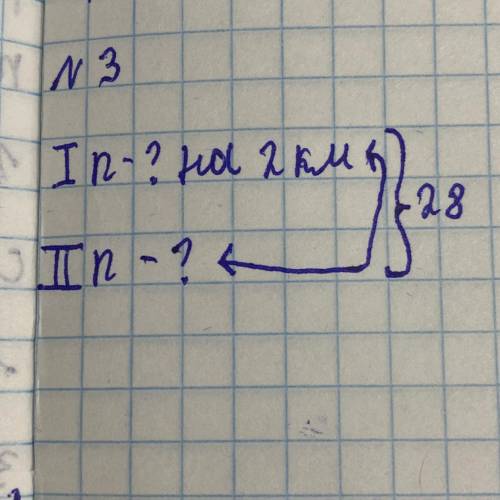 N 3
I п - ? на 2 км } 28
II п - ?